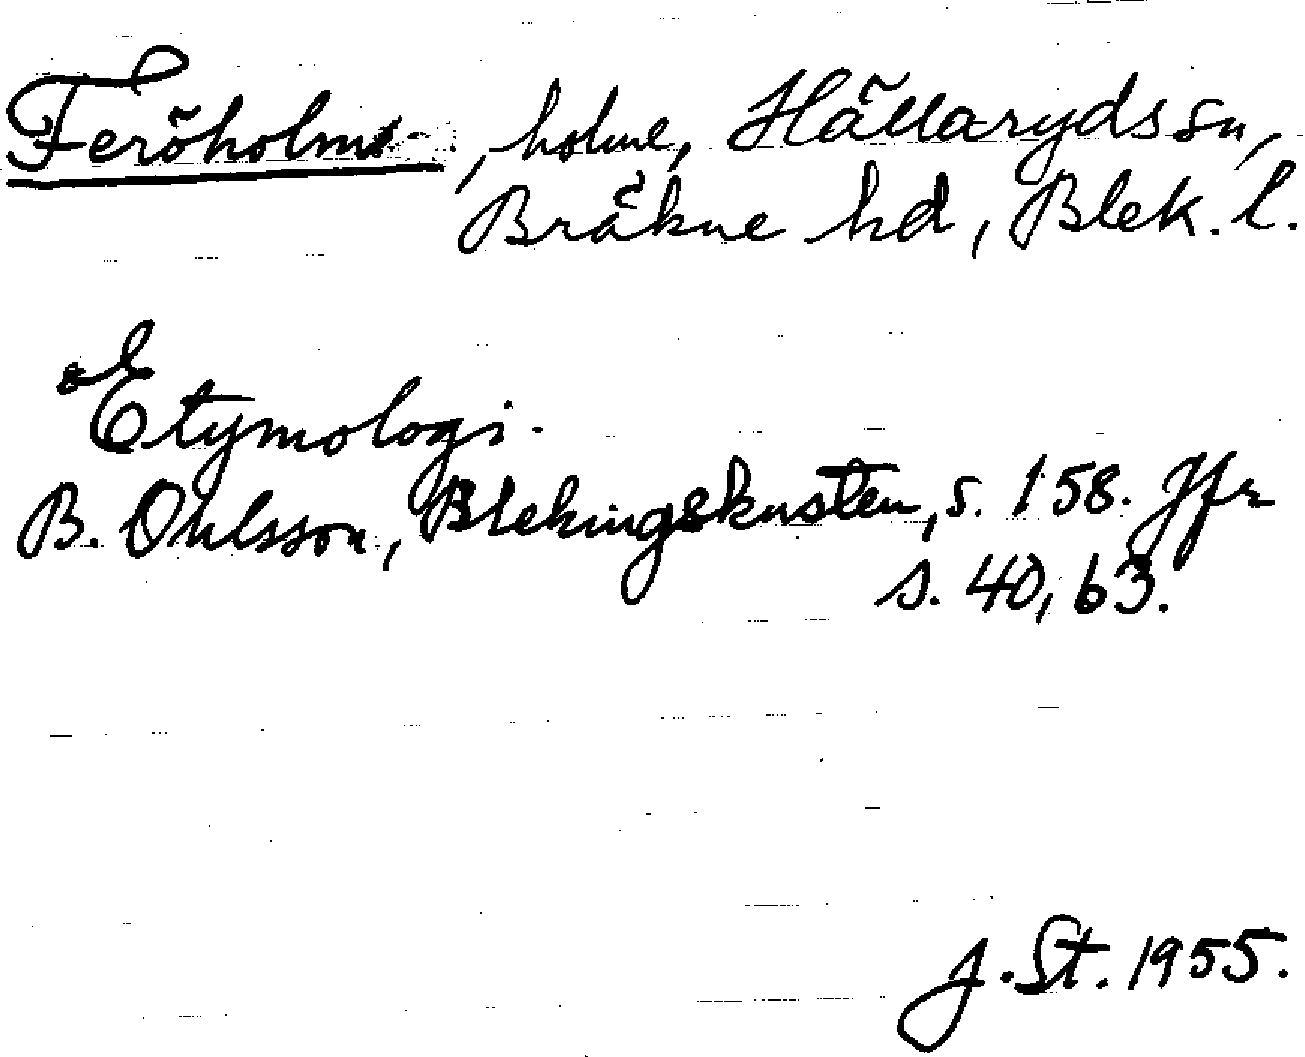 Feröholm, holme, Hällaryds sn,
Bräkne hd, Blek. l.
Etymologi.
B. Ohlsson, Blekingskusten, s. 158. Jfr
s. 40, 63.
J. St. 1955.